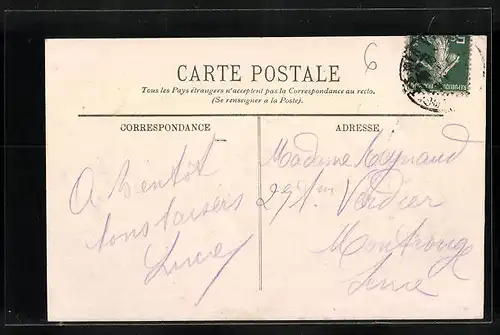 6
CARTE POSTALE
Tous les Pays étrangers n'acceptent pas la Correspondance au recto.
(Se renseigner à la Poste).
CORRESPONDANCE
A bientôt
bons baisers
Lucie
ADRESSE
Madame Raynaud
29 Verdier
Montrouge
Seine